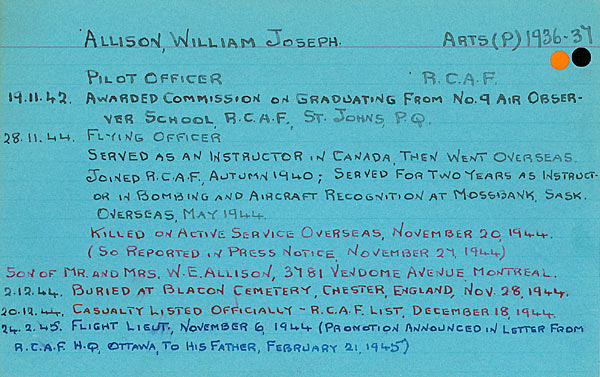 ALLISON, WILLIAM JOSEPH. ARTS (P) 1936-37
PILOT OFFICER R.C.A.F.
19.11.42. AWARDED COMMISSION ON GRADUATING FROM NO. 9 AIR OBSER-
VER SCHOOL, R.C.A.F., ST. JOHNS, P.Q.
28.11.44. FLYING OFFICER
SERVED AS AN INSTRUCTOR IN CANADA, THEN WENT OVERSEAS.
JOINED R.C.A.F., AUTUMN 1940; SERVED FOR TWO YEARS AS INSTRUCT-
OR IN BOMBING AND AIRCRAFT RECOGNITION AT MOSSIBANK, SASK.
OVERSEAS, MAY 1944.
KILLED ON ACTIVE SERVICE OVERSEAS, NOVEMBER 20, 1944.
(SO REPORTED IN PRESS NOTICE, NOVEMBER 27, 1944)
SON OF MR. AND MRS. W. E. ALLISON, 3781 VENDOME AVENUE MONTREAL.
2.12.44. BURIED AT BLACON CEMETERY, CHESTER, ENGLAND, NOV. 28, 1944.
20.12.44. CASUALTY LISTED OFFICIALLY - R.C.A.F. LIST, DECEMBER 18, 1944.
24.2.45. FLIGHT LIEUT., NOVEMBER 6, 1944 (PROMOTION ANNOUNCED IN LETTER FROM
R.C.A.F. H.Q., OTTAWA, TO HIS FATHER, FEBRUARY 21, 1945)